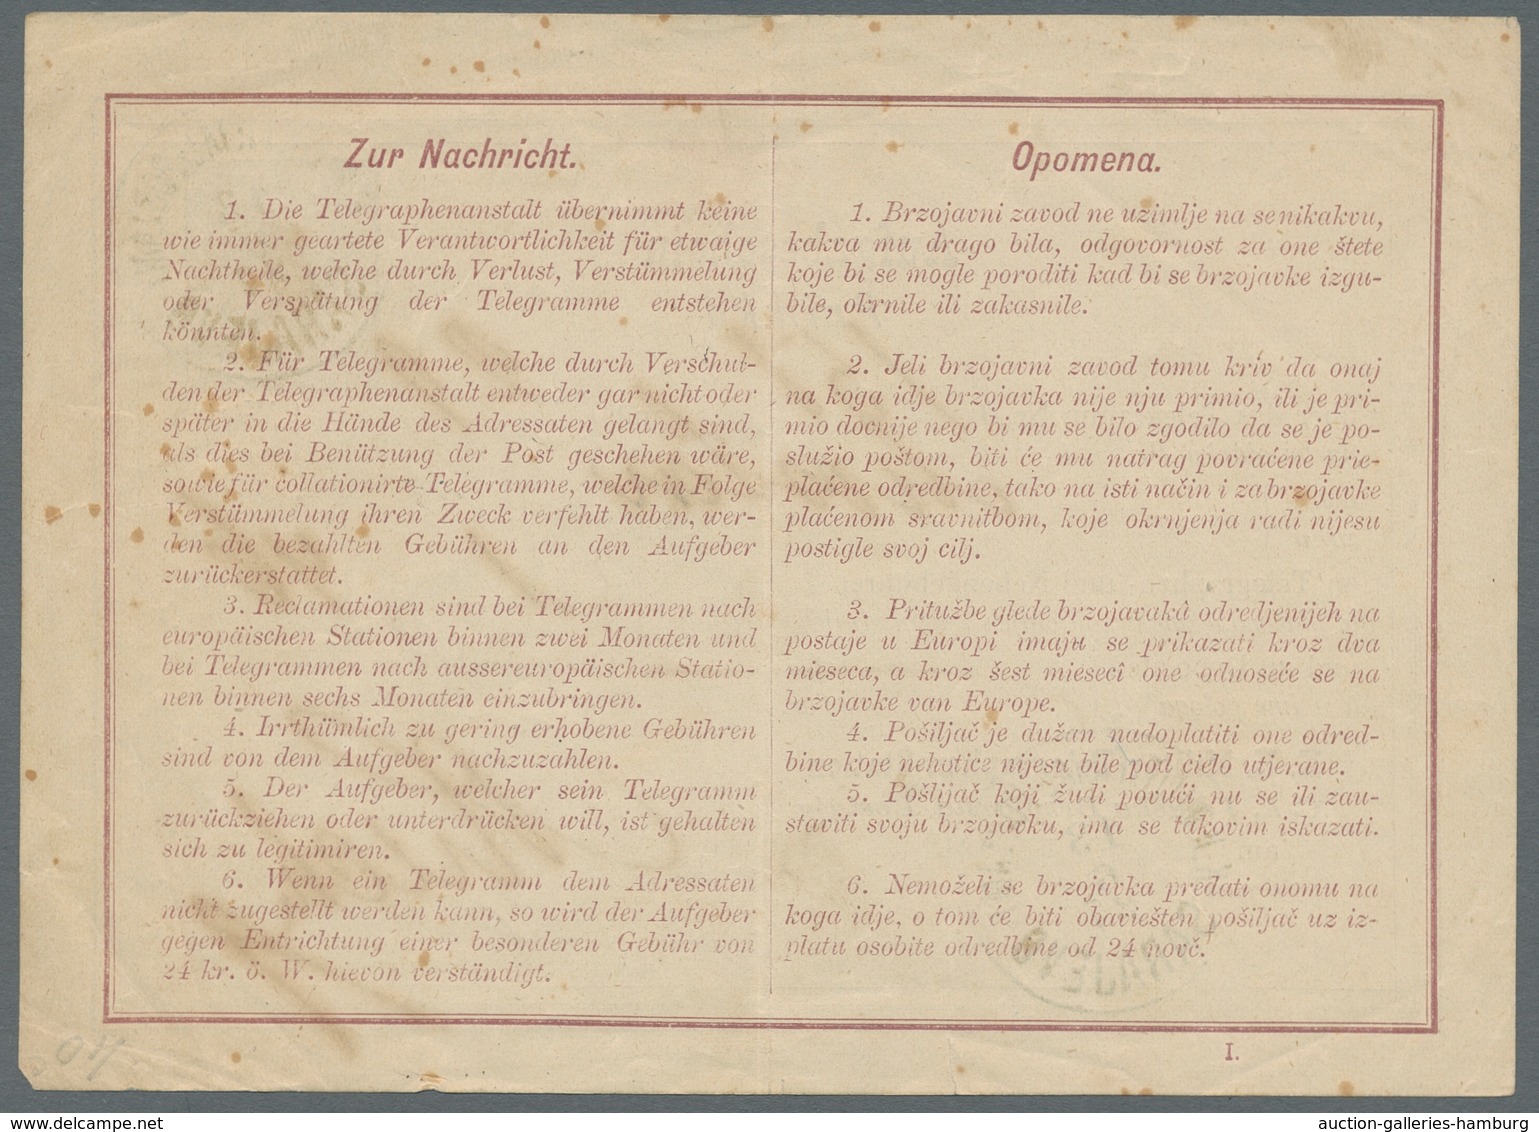 Zur Nachricht.
1. Die Telegraphenanstalt übernimmt keine
wie immer geartete Verantwortlichkeit für etwaige
Nachtheile, welche durch Verlust, Verstümmelung
oder Verspätung der Telegramme entstehen
könnten.
2. Für Telegramme, welche durch Verschul-
den der Telegraphenanstalt entweder gar nicht oder
später in die Hände des Adressaten gelangt sind,
als dies bei Benützung der Post geschehen wäre,
sowie für collationirte Telegramme, welche in Folge
Verstümmelung ihren Zweck verfehlt haben, wer-
den die bezahlten Gebühren an den Aufgeber
zurückerstattet.
3. Reclamationen sind bei Telegrammen nach
europäischen Stationen binnen zwei Monaten und
bei Telegrammen nach aussereuropäischen Statio-
nen binnen sechs Monaten einzubringen.
4. Irrthümlich zu gering erhobene Gebühren
sind von dem Aufgeber nachzuzahlen.
5. Der Aufgeber, welcher sein Telegramm
zurückziehen oder unterdrücken will, ist gehalten
sich zu legitimiren.
6. Wenn ein Telegramm dem Adressaten
nicht zugestellt werden kann, so wird der Aufgeber
gegen Entrichtung einer besonderen Gebühr von
24 kr. ö. W. hievon verständigt.
Opomena.
1. Brzojavni zavod ne uzimlje na se nikakvu,
kakva mu drago bila, odgovornost za one štete
koje bi se mogle poroditi kad bi se brzojavke izgu-
bile, okrnile ili zakasnile.
2. Jeli brzojavni zavod tomu kriv da onaj
na koga idje brzojavka nije nju primio, ili je pri-
mio docnije nego bi mu se bilo zgodilo da se je po-
služio poštom, biti će mu natrag povraćene prie-
plaćene odredbine, tako na isti način i za brzojavke
plaćenom sravnitbom, koje okrnjenja radi nijesu
postigle svoj cilj.
3. Pritužbe glede brzojavakâ odredjenijeh na
postaje u Europi imaju se prikazati kroz dva
mieseca, a kroz šest miesecî one odnoseće se na
brzojavke van Europe.
4. Pošiljač je dužan nadoplatiti one odred-
bine koje nehotice nijesu bile pod cielo utjerane.
5. Pošlijač koji žudi povući nu se ili zau-
staviti svoju brzojavku, ima se takovim iskazati.
6. Nemoželi se brzojavka predati onomu na
koga idje, o tom će biti obaviešten pošiljač uz iz-
platu osobite odredbine od 24 novč.
I.
auction-galleries-hamburg